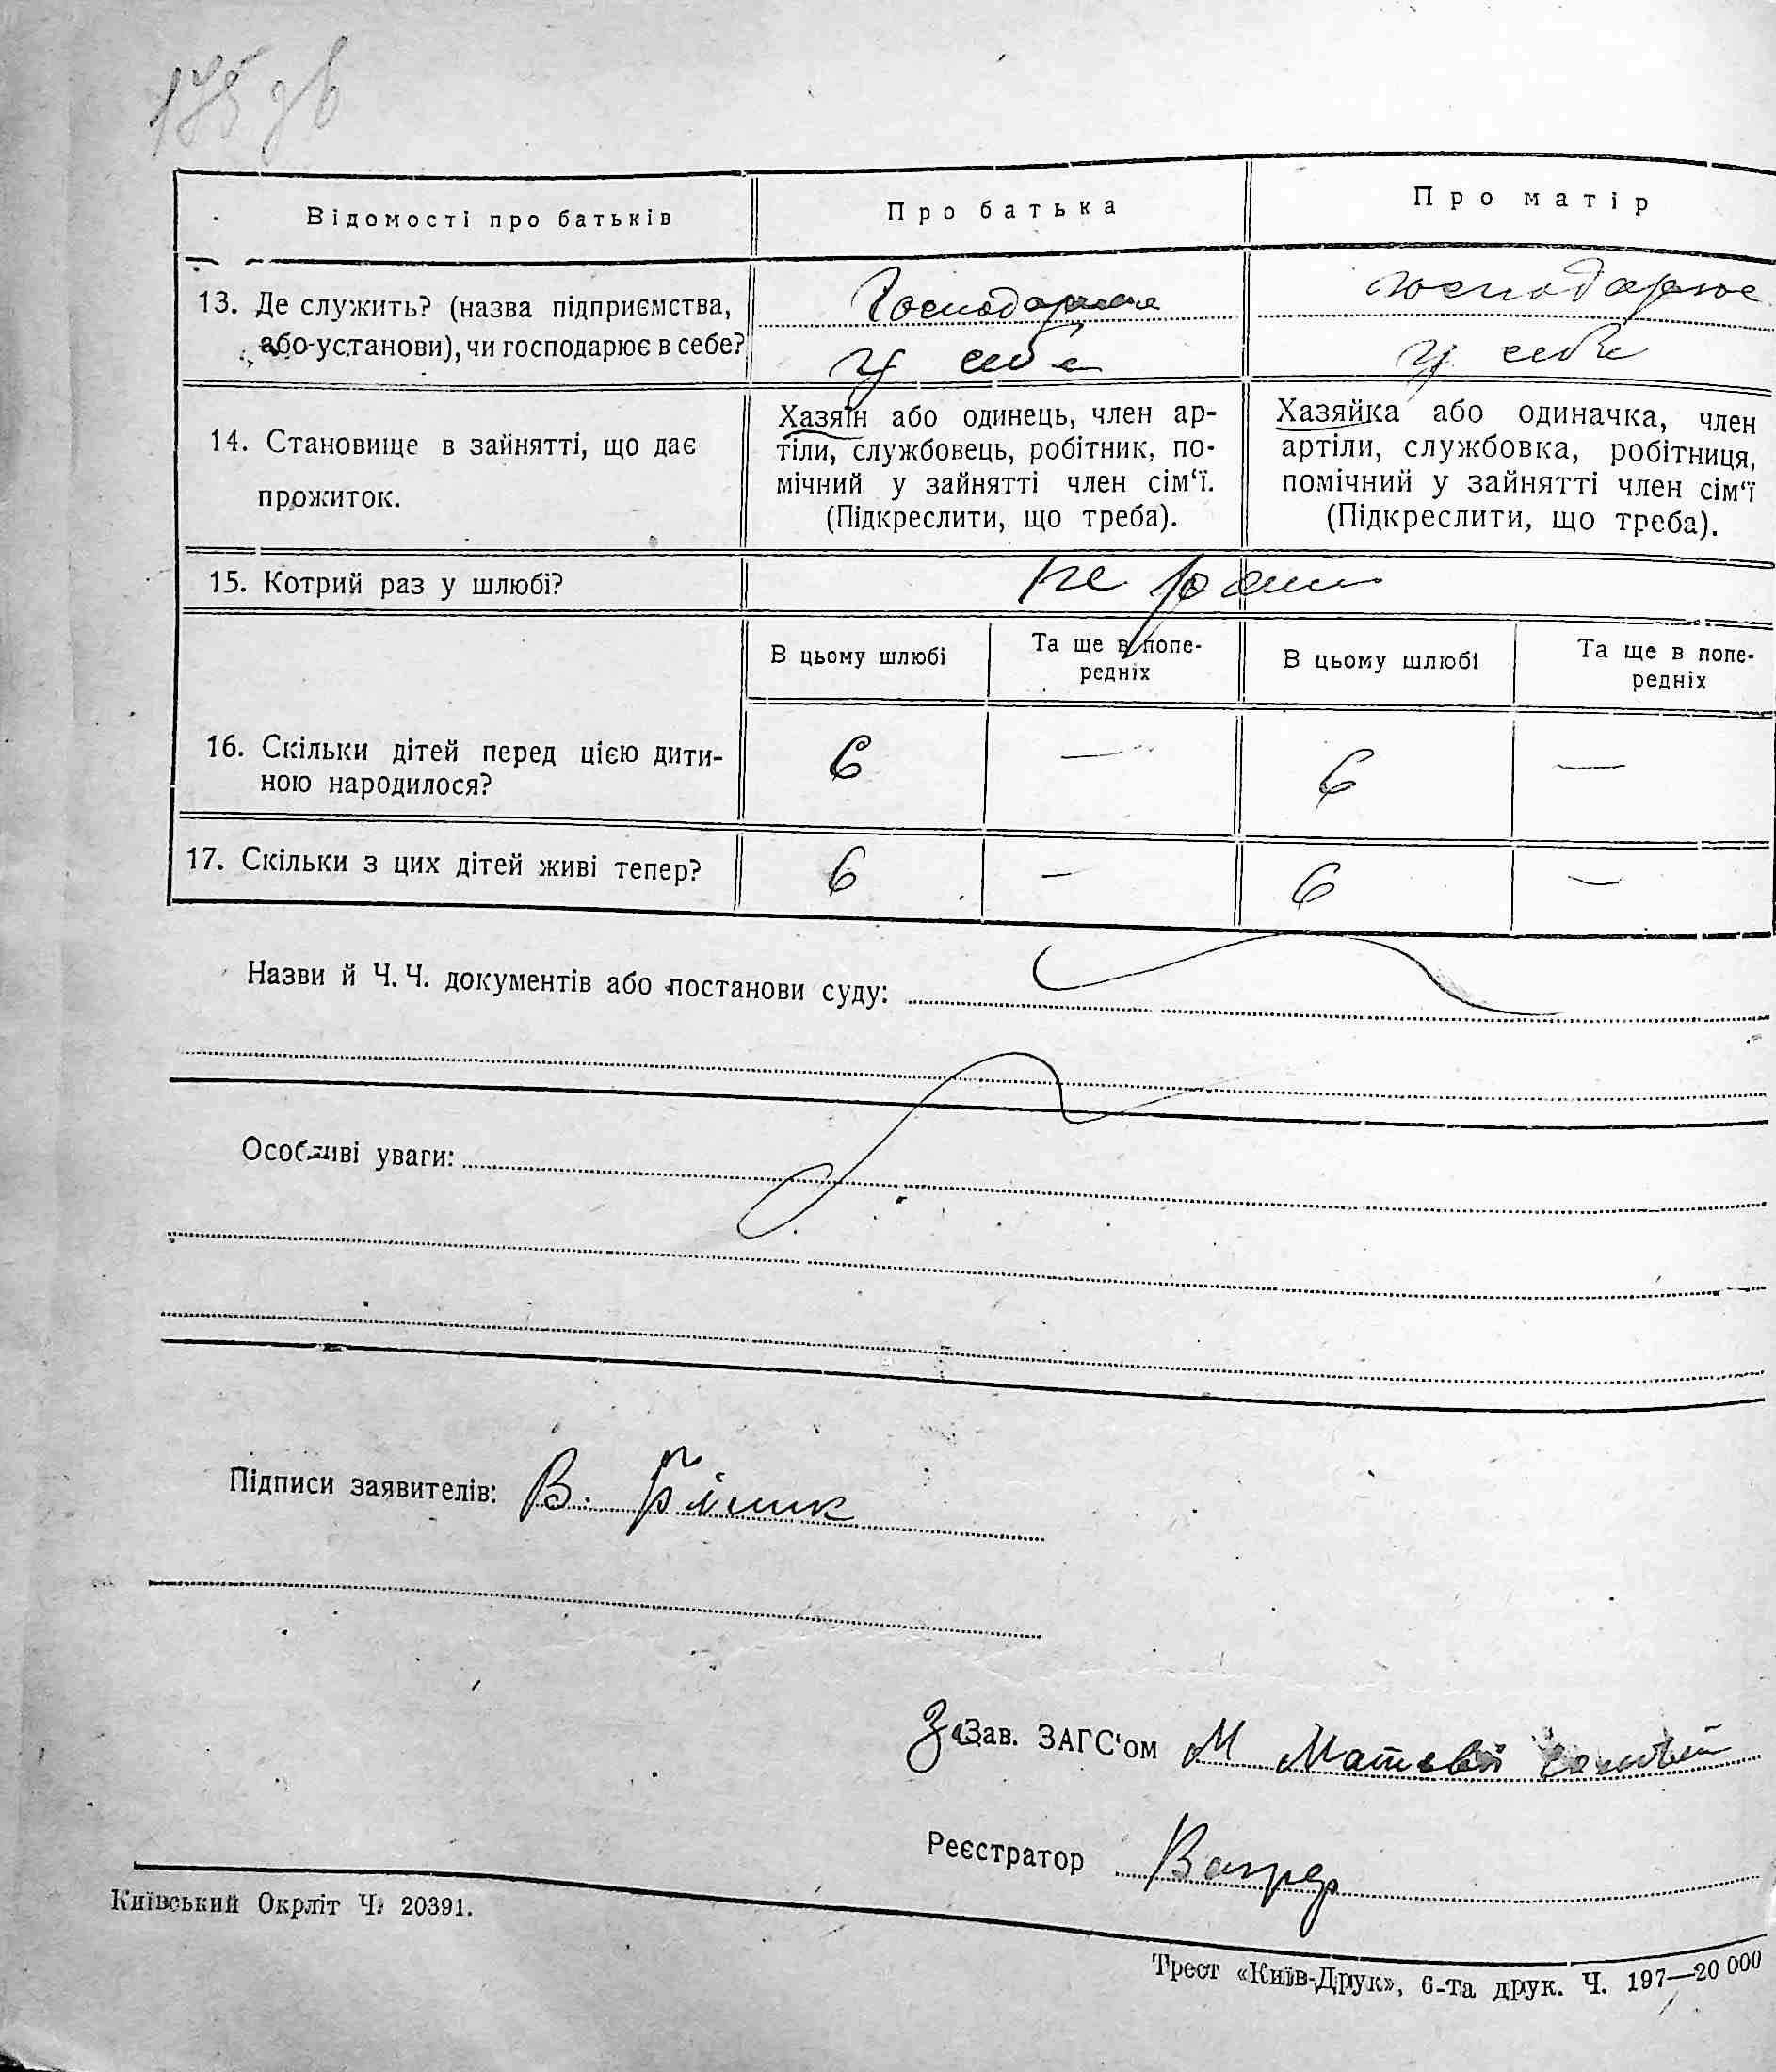 175 зв
Відомості про батьків
Про батька
Про матір
13. Де служить? (назва підприємства,
або установи), чи господарює в себе?
Господарює
у себе
господарює
у себе
14. Становище в зайнятті, що дає
прожиток.
Хазяїн або одинець, член ар-
тіли, службовець, робітник, по-
мічний у зайнятті член сім‘ї.
(Підкреслити, що треба).
Хазяйка або одиначка, член
артіли, службовка, робітниця,
помічний у зайнятті член сім‘ї
(Підкреслити, що треба).
15. Котрий раз у шлюбі?
В цьому шлюбі
Та ще в попе-
редніх
В цьому шлюбі
Та ще в попе-
редніх
16. Скільки дітей перед цією дити-
ною народилося?
6 — 6 —
17. Скільки з цих дітей живі тепер?
6 — 6 —
Назви й Ч. Ч. документів або постанови суду:
Особливі уваги:
Підписи заявителів: В.
Зав. ЗАГС‘ом М
Реєстратор
Київський Окрліт Ч. 20391.
Трест «Київ-Друк», 6-та друк. Ч. 197—20 000